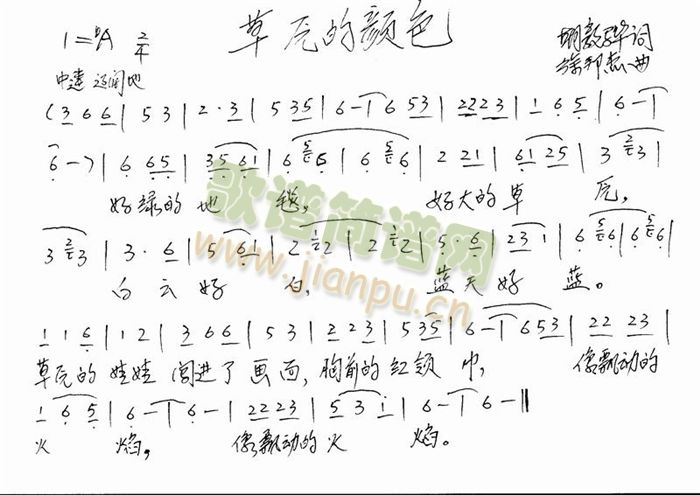 草原的颜色
1=♭A 2/4
词
曲
中速 辽阔地
(3 6 6 | 5 3 | 2· 3 | 5 3 5 | 6 - | 6 5 3 | 2 2 2 3 | 1 6 5 | 6 - |
6 -) | 6 6 5 | 3 5 6 1 | 6 5 6 | 6 5 6 | 2 2 1 | 6 1 2 5 | 3 2 3 |
好绿的地 毯, 好大的草 原,
3 2 3 | 3· 6 | 5 6 1 | 2 1 2 | 2 1 2 | 5· 6 | 2 3 1 | 6 5 6 | 6 5 6 |
白云好 白, 蓝天好 蓝。
1 1 6 | 1 2 | 3 6 6 | 5 3 | 2 2 3 | 5 3 5 | 6 - | 6 5 3 | 2 2 2 3 |
草原的娃娃闯进了画面,胸前的红领 巾, 像飘动的
1 6 5 | 6 - | 6 - | 2 2 2 3 | 5 3 1 | 6 - | 6 - ‖
火 焰, 像飘动的火 焰。
歌谱简谱网
www.jianpu.cn